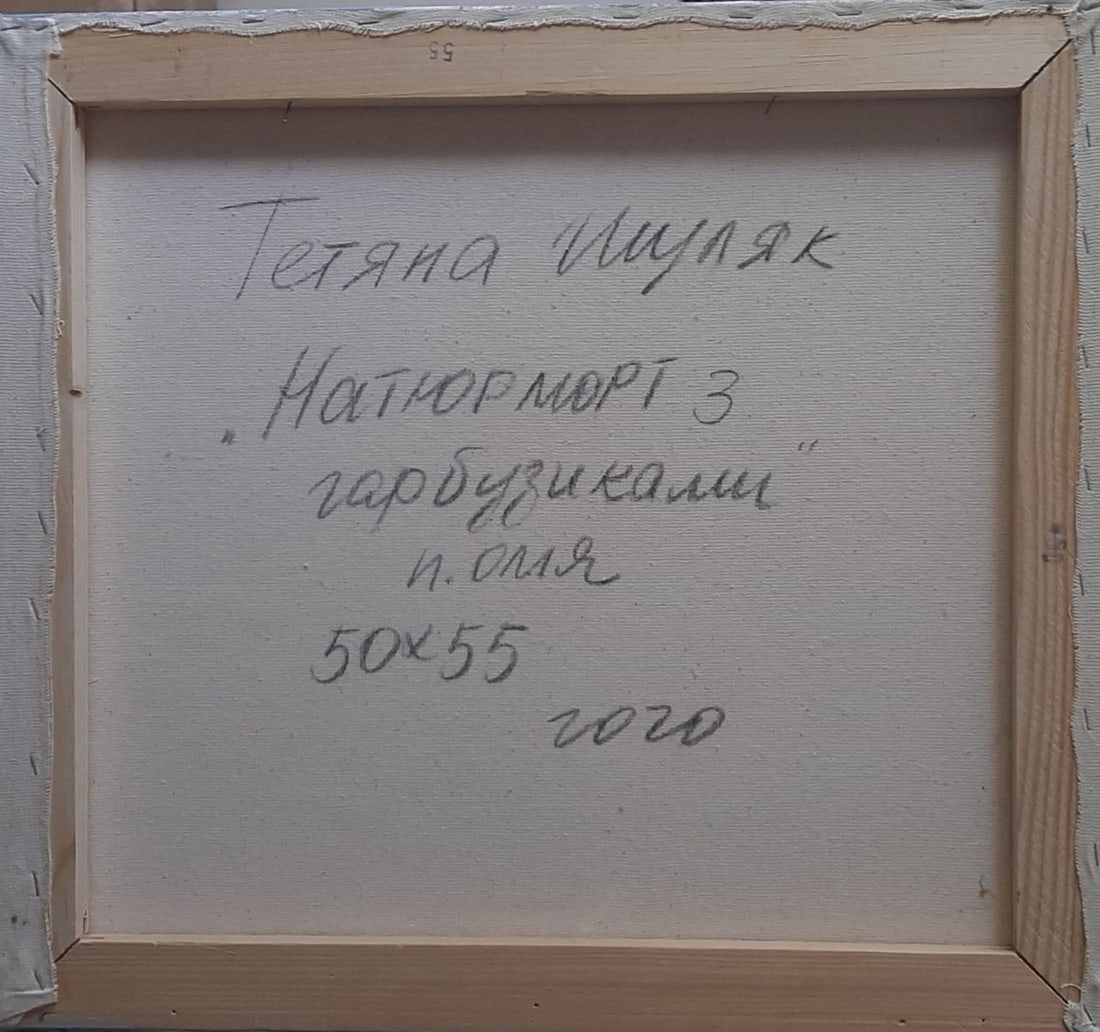 55
Тетяна Шуляк
„Натюрморт з
гарбузиками"
п. олія
50x55
2020